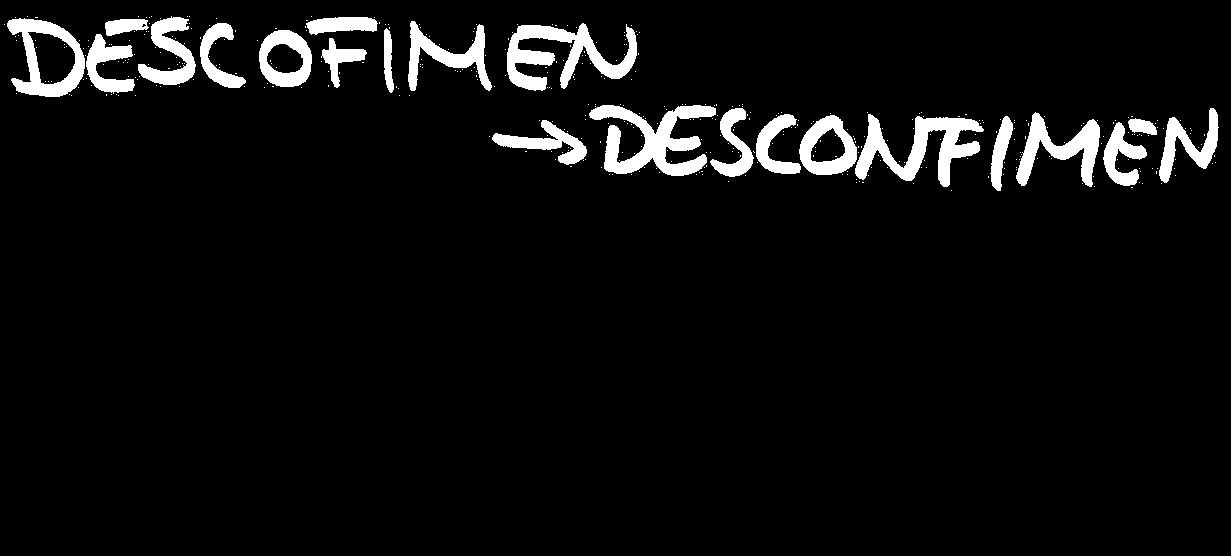 DESCOFIMEN
→DESCONFIMEN